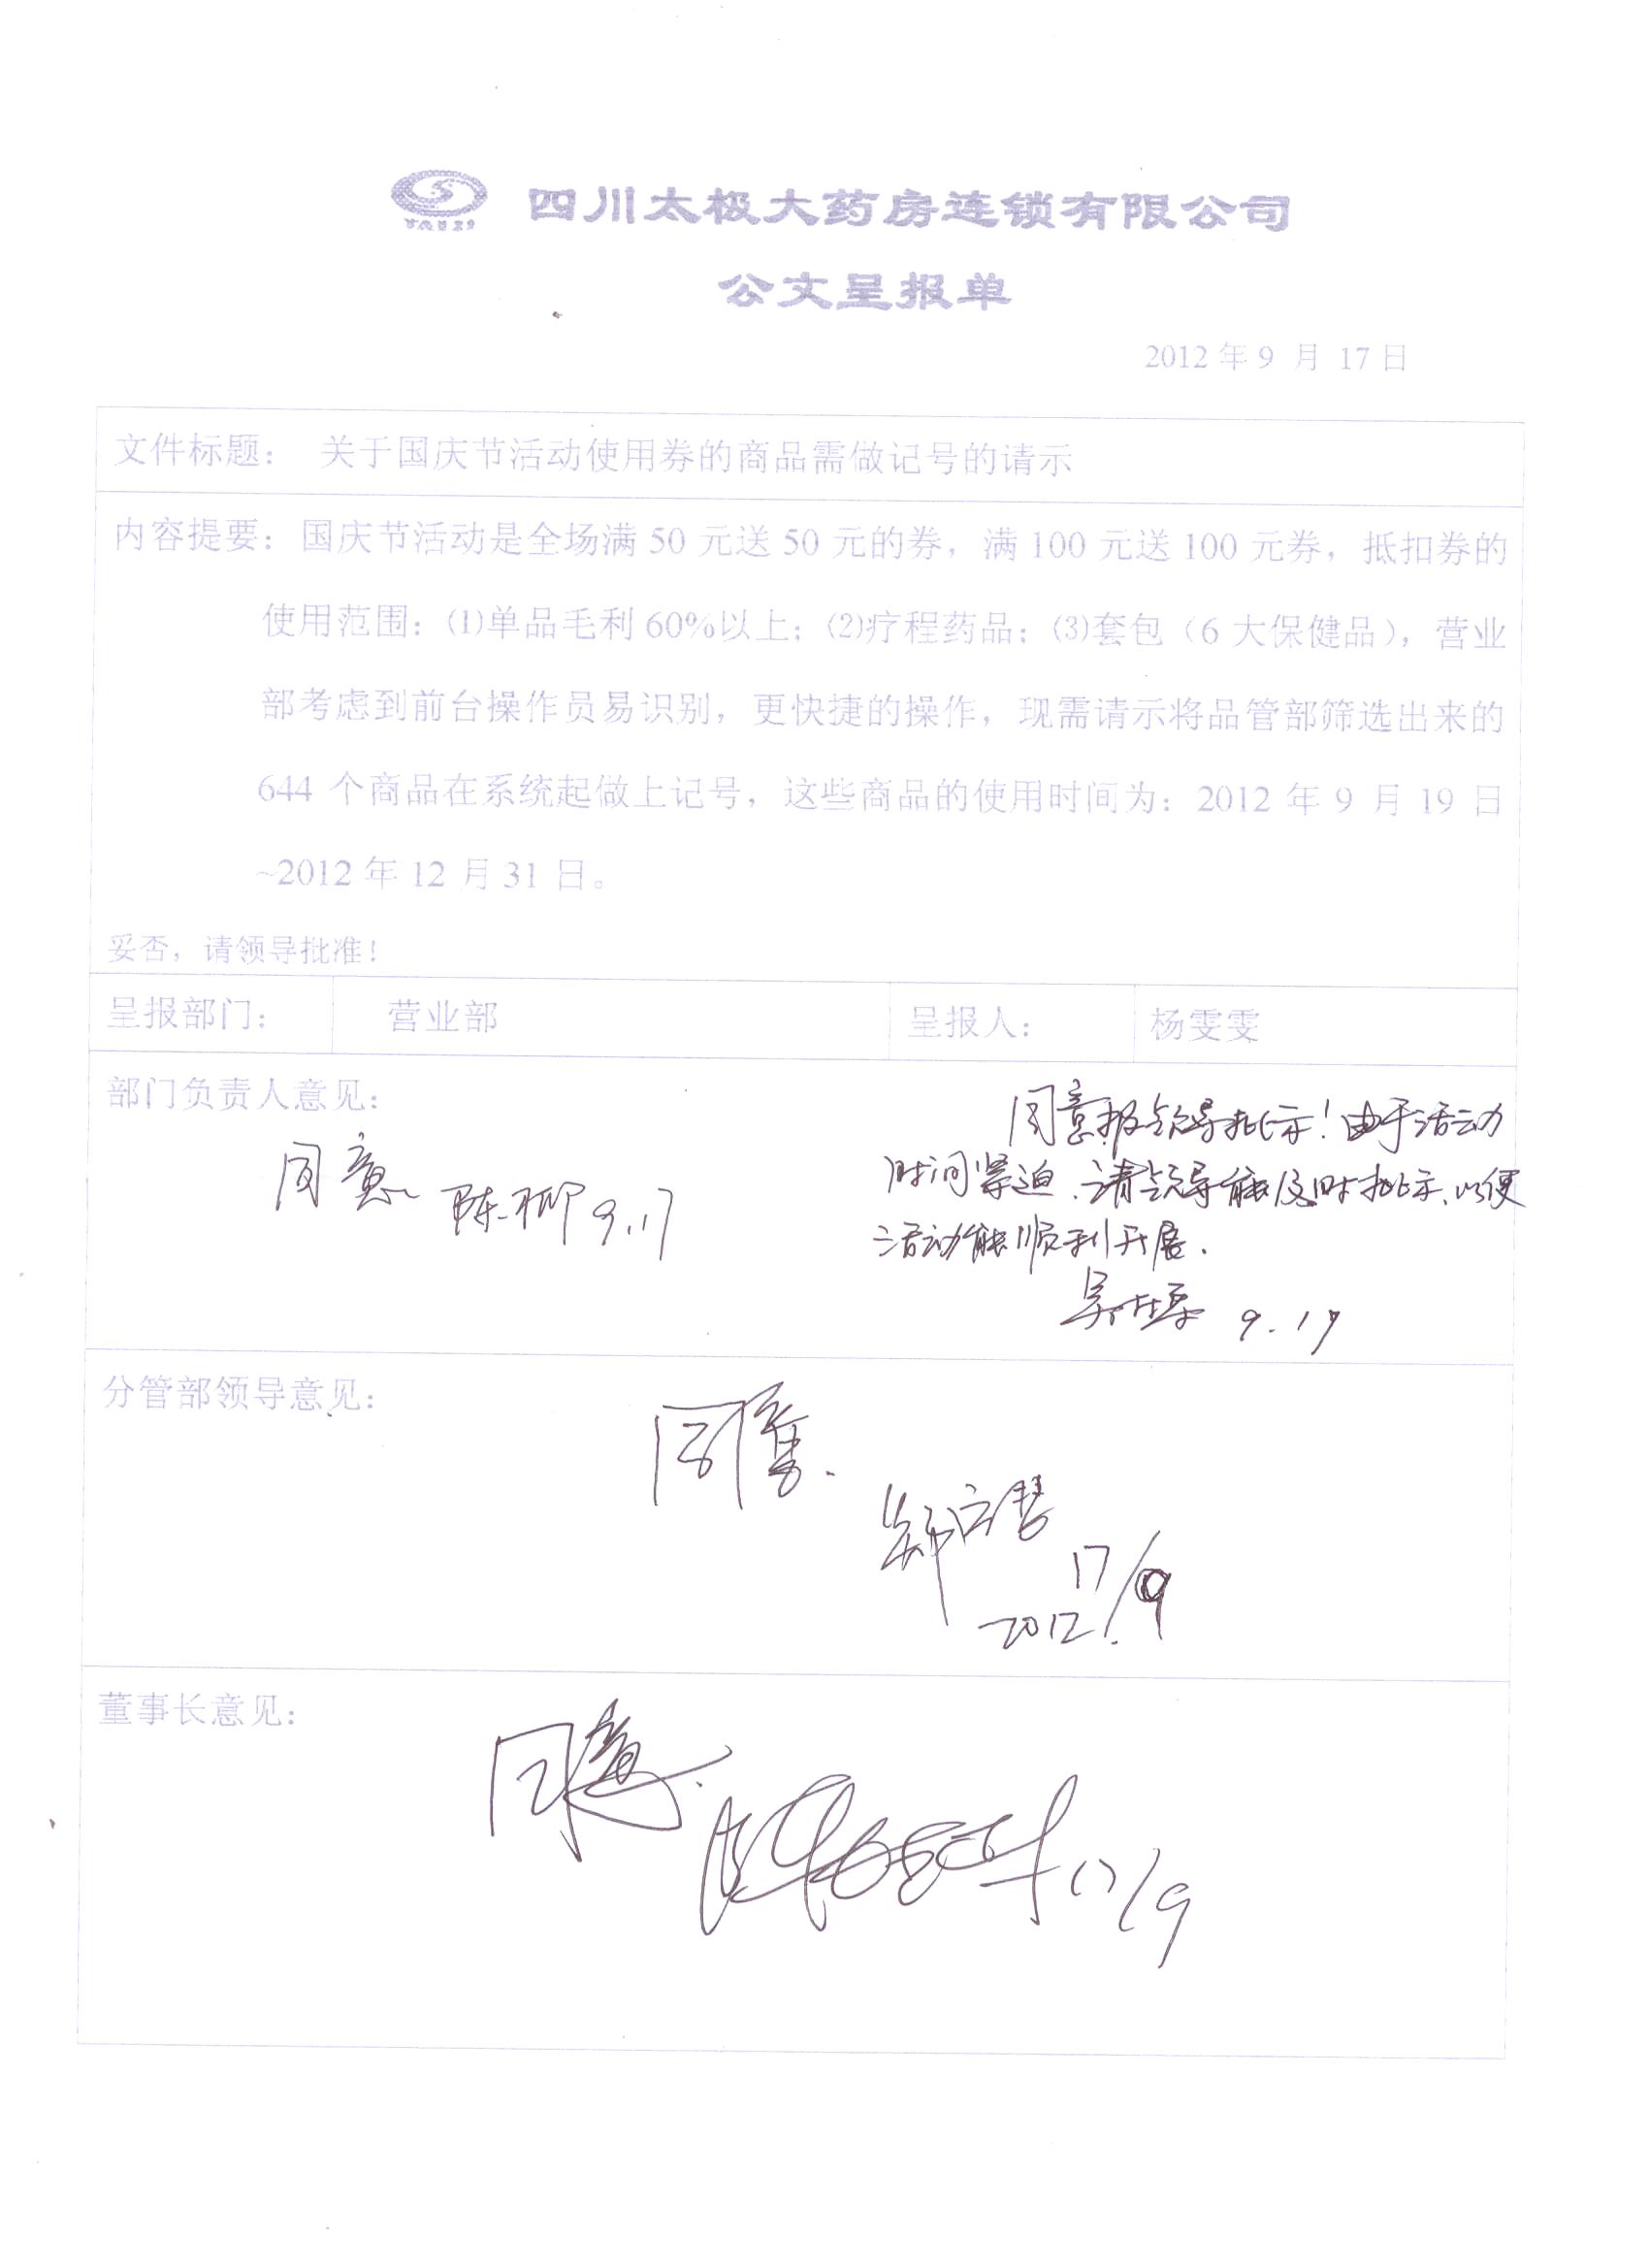 TAIJI
四川太极大药房连锁有限公司
公文呈报单
2012年9 月 17日
文件标题： 关于国庆节活动使用券的商品需做记号的请示
内容提要：国庆节活动是全场满50元送50元的券，满100元送100元券，抵扣券的
使用范围：⑴单品毛利60%以上；⑵疗程药品；⑶套包（6大保健品），营业
部考虑到前台操作员易识别，更快捷的操作，现需请示将品管部筛选出来的
644个商品在系统起做上记号，这些商品的使用时间为：2012年9月19日
~2012年12月31日。
妥否，请领导批准！
呈报部门： 营业部 呈报人： 杨雯雯
部门负责人意见：
同意 陈柳 9.17
同意报领导批示！由于活动
时间紧迫、请领导能及时批示、以便
活动能顺利开展.
9.17
分管部领导意见：
同意.
17/9
2012.
董事长意见：
同意.
17/9